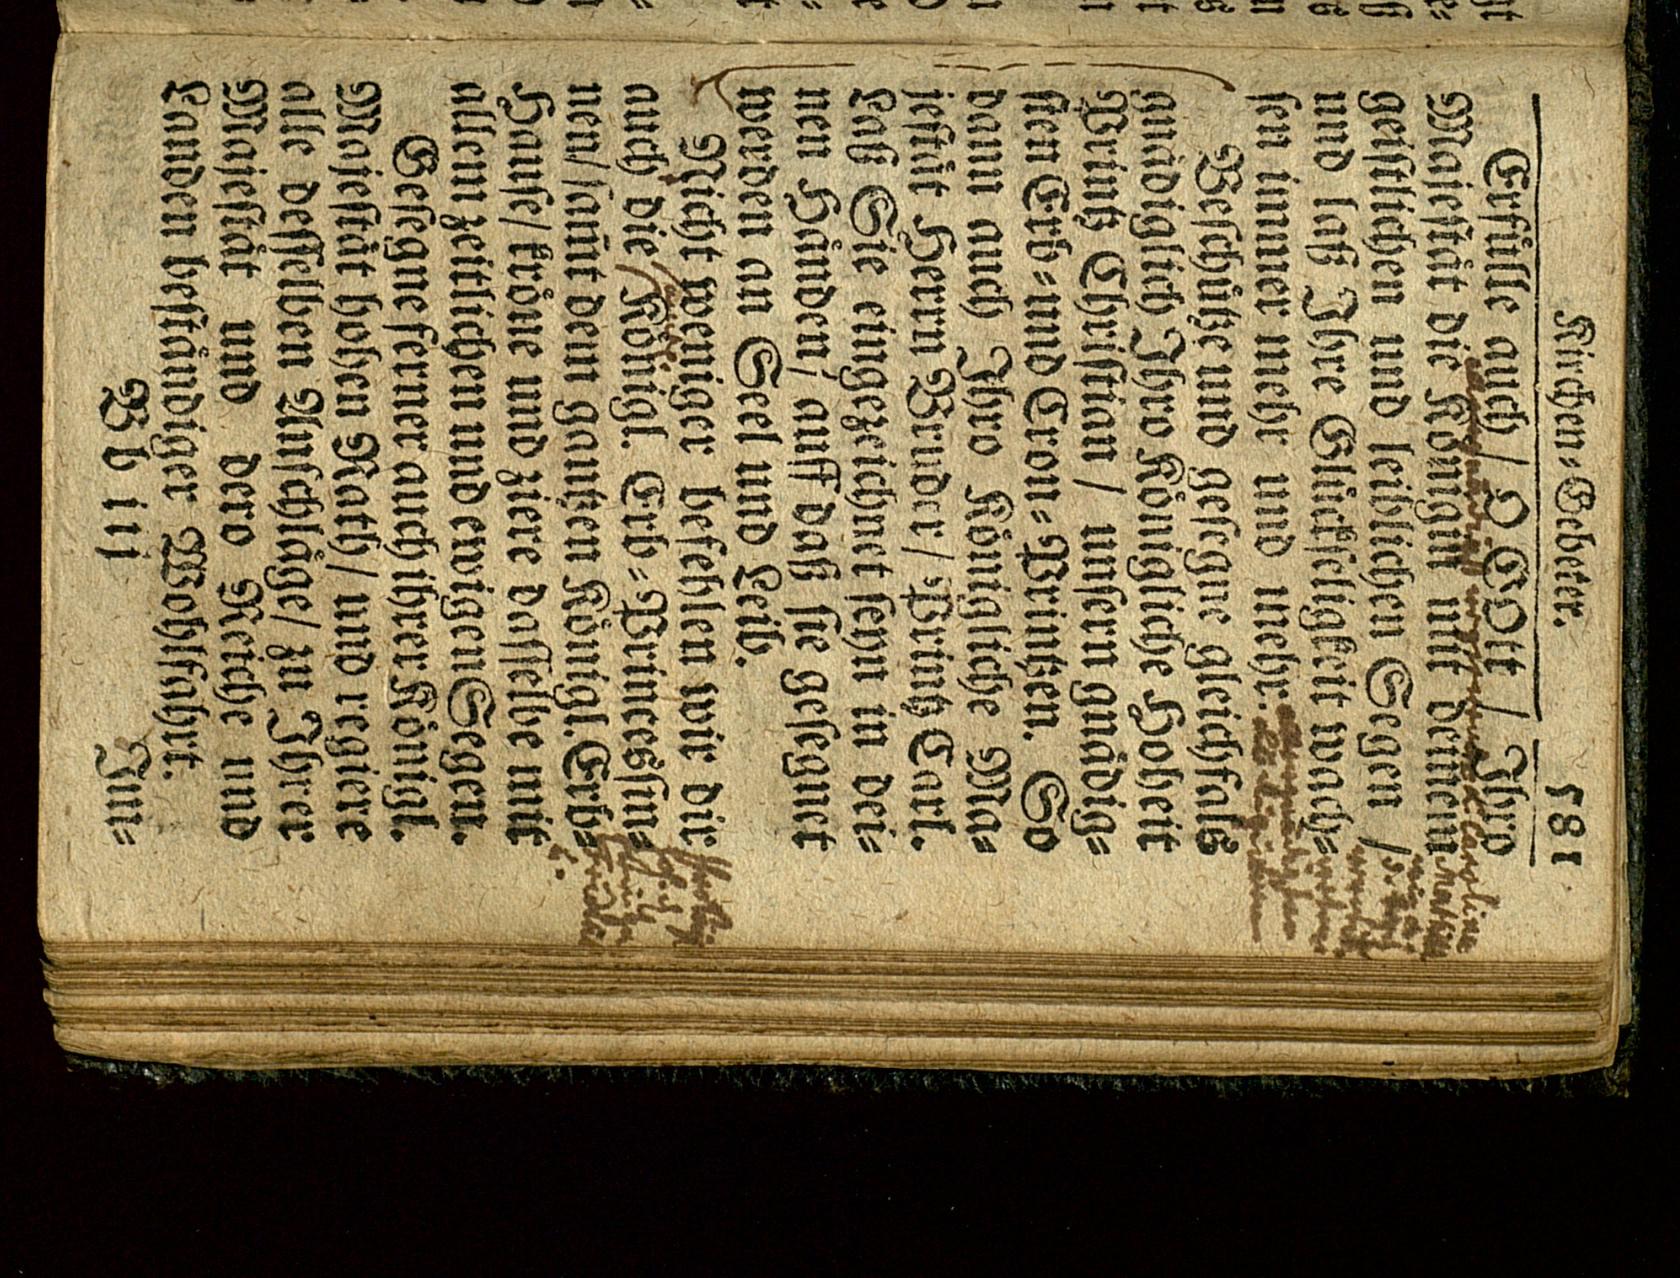 Kirchen-Gebeter. 187
Erfülle auch / O GOtt / Ihro
Majestät die Königin mit deinem
geistlichen und leiblichen Segen /
und laß Ihre Glückseligkeit wach-
sen immer mehr und mehr.
Beschütze und gesegne gleichfalß
gnädiglich Ihro Königliche Hoheit
Printz Christian / unsern gnädig-
sten Erb- und Cron-Printzen. So
dann auch Ihro Königliche Ma-
jestät Herrn Bruder / Printz Carl.
Laß Sie eingezeichnet seyn in dei-
nen Händen / auff daß sie gesegnet
werden an Seel und Leib.
Nicht weniger befehlen wir dir
auch die Königl. Erb-Princessin-
nen / samt dem gantzen Königl. Erb-
Hause / kröne und ziere dasselbe mit
allem zeitlichen und ewigen Segen.
Gesegne ferner auch ihrer Königl.
Majestät hohen Rath / und regiere
alle desselben Anschläge / zu Ihrer
Majestät und dero Reiche und
Landen beständiger Wohlfahrt.
B b iij Inn-